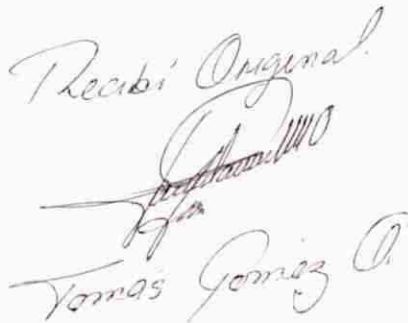 Recibí Original.
Tomás Gomez O.